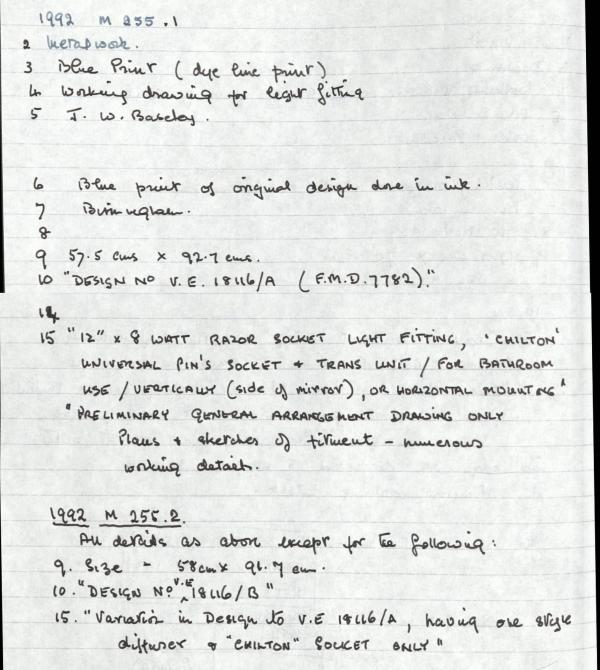 1992 M 255.1
2 Metalwork.
3 Blue Print (dye line print)
4 Working drawing for light fitting
5 J. W. Barclay.
6 Blue print of original design done in ink.
7 Birmingham.
8
9 57.5 cms x 92.7 cms.
10 "DESIGN NO V.E. 18116/A (F.M.D.7782)."
14
15 "12" x 8 WATT RAZOR SOCKET LIGHT FITTING, 'CHILTON'
UNIVERSAL PIN'S SOCKET & TRANS UNIT / FOR BATHROOM
USE / VERTICALLY (side of mirror), OR HORIZONTAL MOUNTING"
"PRELIMINARY GENERAL ARRANGEMENT DRAWING ONLY
Plans & sketches of fitment - numerous
working details.
1992 M 255.2.
All details as above except for the following:
9. Size - 58cm x 91.7 cm.
10. "DESIGN NO V.E 18116/B"
15. "Variation in Design to V.E 18116/A, having one single
diffuser & "CHILTON" SOCKET ONLY"